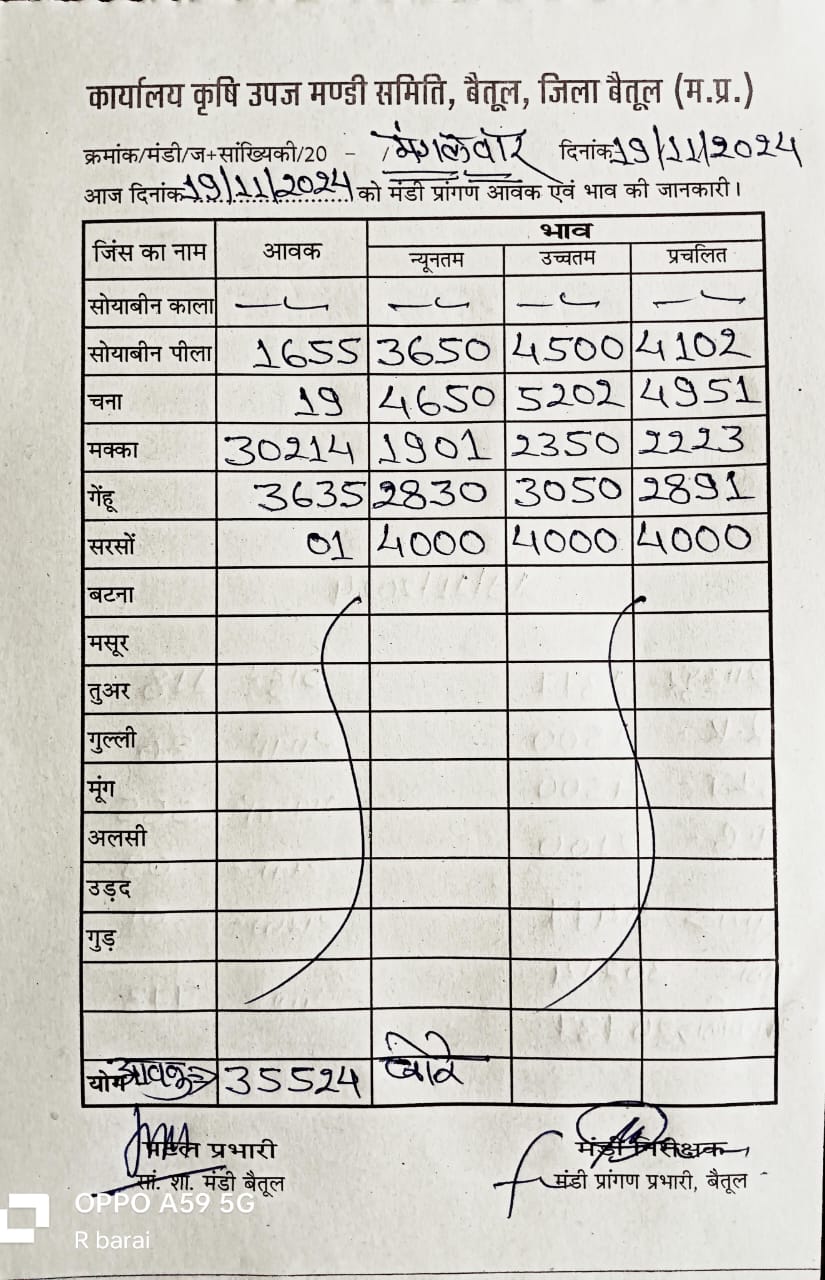 कार्यालय कृषि उपज मण्डी समिति, बैतूल, जिला बैतूल (म.प्र.)
क्रमांक/मंडी/ज+सांख्यिकी/20 - / मंगलवार दिनांक 19/11/2024
आज दिनांक 19/11/2024 को मंडी प्रांगण आवक एवं भाव की जानकारी।
जिंस का नाम आवक भाव
न्यूनतम उच्चतम प्रचलित
सोयाबीन काला
सोयाबीन पीला 1655 3650 4500 4102
चना 19 4650 5202 4951
मक्का 30214 1901 2350 2223
गेंहू 3635 2830 3050 2891
सरसों 01 4000 4000 4000
बटना
मसूर
तुअर
गुल्ली
मूंग
अलसी
उड़द
गुड़
योग आवक 35524 बोरे
प्रभारी मंडी निरीक्षक
सां. शा. मंडी बैतूल मंडी प्रांगण प्रभारी, बैतूल
OPPO A59 5G
R barai